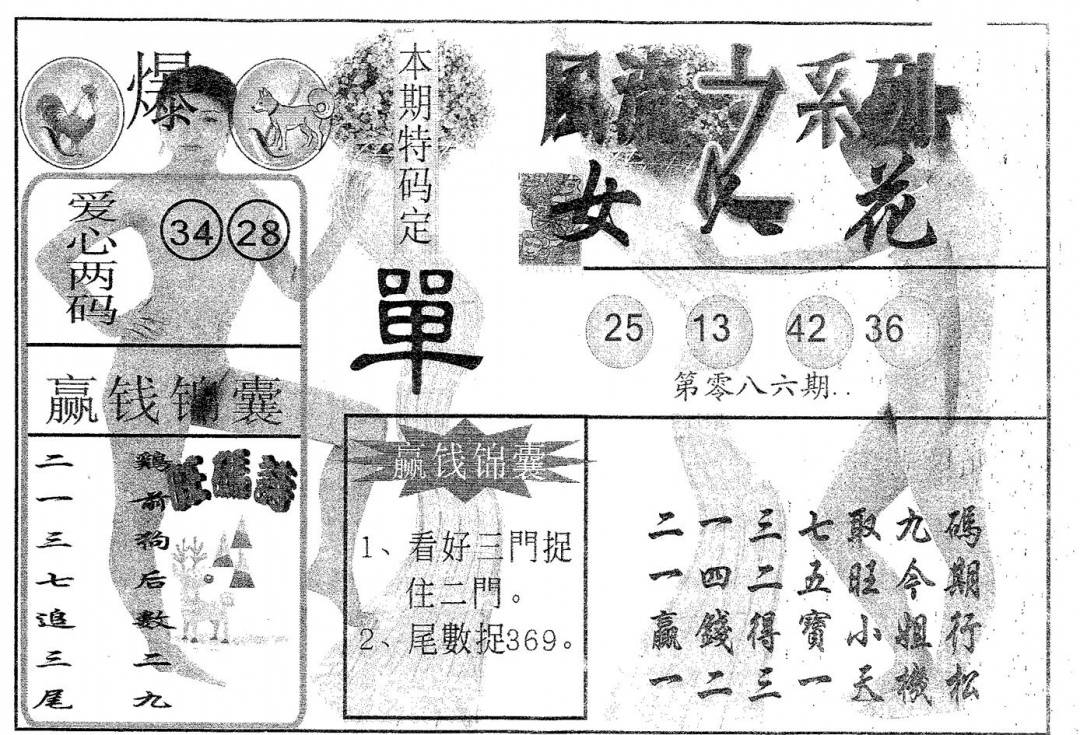 爆
爱心两码
34 28
赢钱锦囊
二一三七追三尾
鷄前狗后數二九
旺碼詩
本期特码定
單
風流之系列
女人花
25 13 42 36
第零八六期..
赢钱锦囊
1、看好三門捉
住二門。
2、尾數捉369。
二一三七取九碼
一四二五旺今期
贏錢得寶小姐行
一二三一天機松